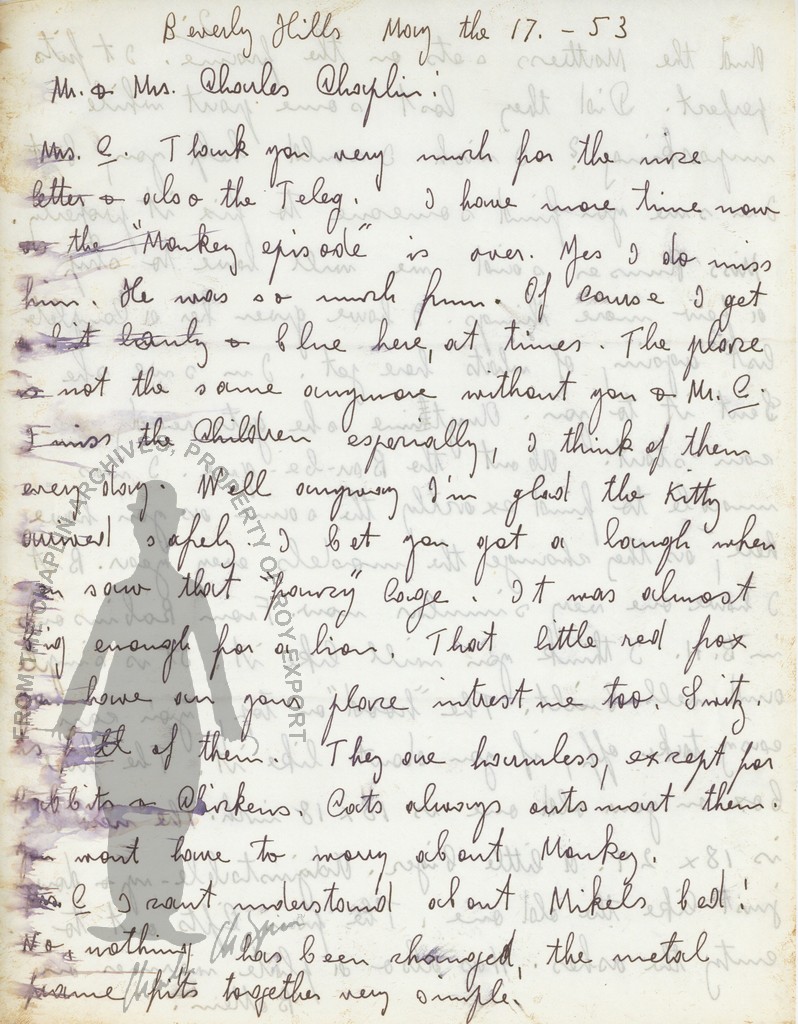 Beverly Hills May the 17. - 53
Mr. & Mrs. Charles Chaplin!
Mrs. C. Thank you very much for the nice
letter & also the Teleg. I have more time now
as the "Monkey episode" is over. Yes I do miss
him. He was so much funn. Of course I get
a bit lonely & blue here, at times. The place
is not the same anymore without you & Mr. C.
I miss the Children especially, I think of them
every day. Well anyway I'm glad the Kitty
arrived safely I bet you got a laugh when
saw that "fancy" Cage. It was almost
big enough for a lion. That little red fox
have on your place intrest me too. Switz.
is full of them. They are harmless, except for
Rabbits & Chickens. Cats always outsmart them.
You wont have to worry about Monkey.
Mrs. C I cant understand about Mikels bed!
No, nothing has been changed, the metal
frame fits together very simple.
FROM THE CHAPLIN ARCHIVES, PROPERTY OF ROY EXPORT
Charlie Chaplin